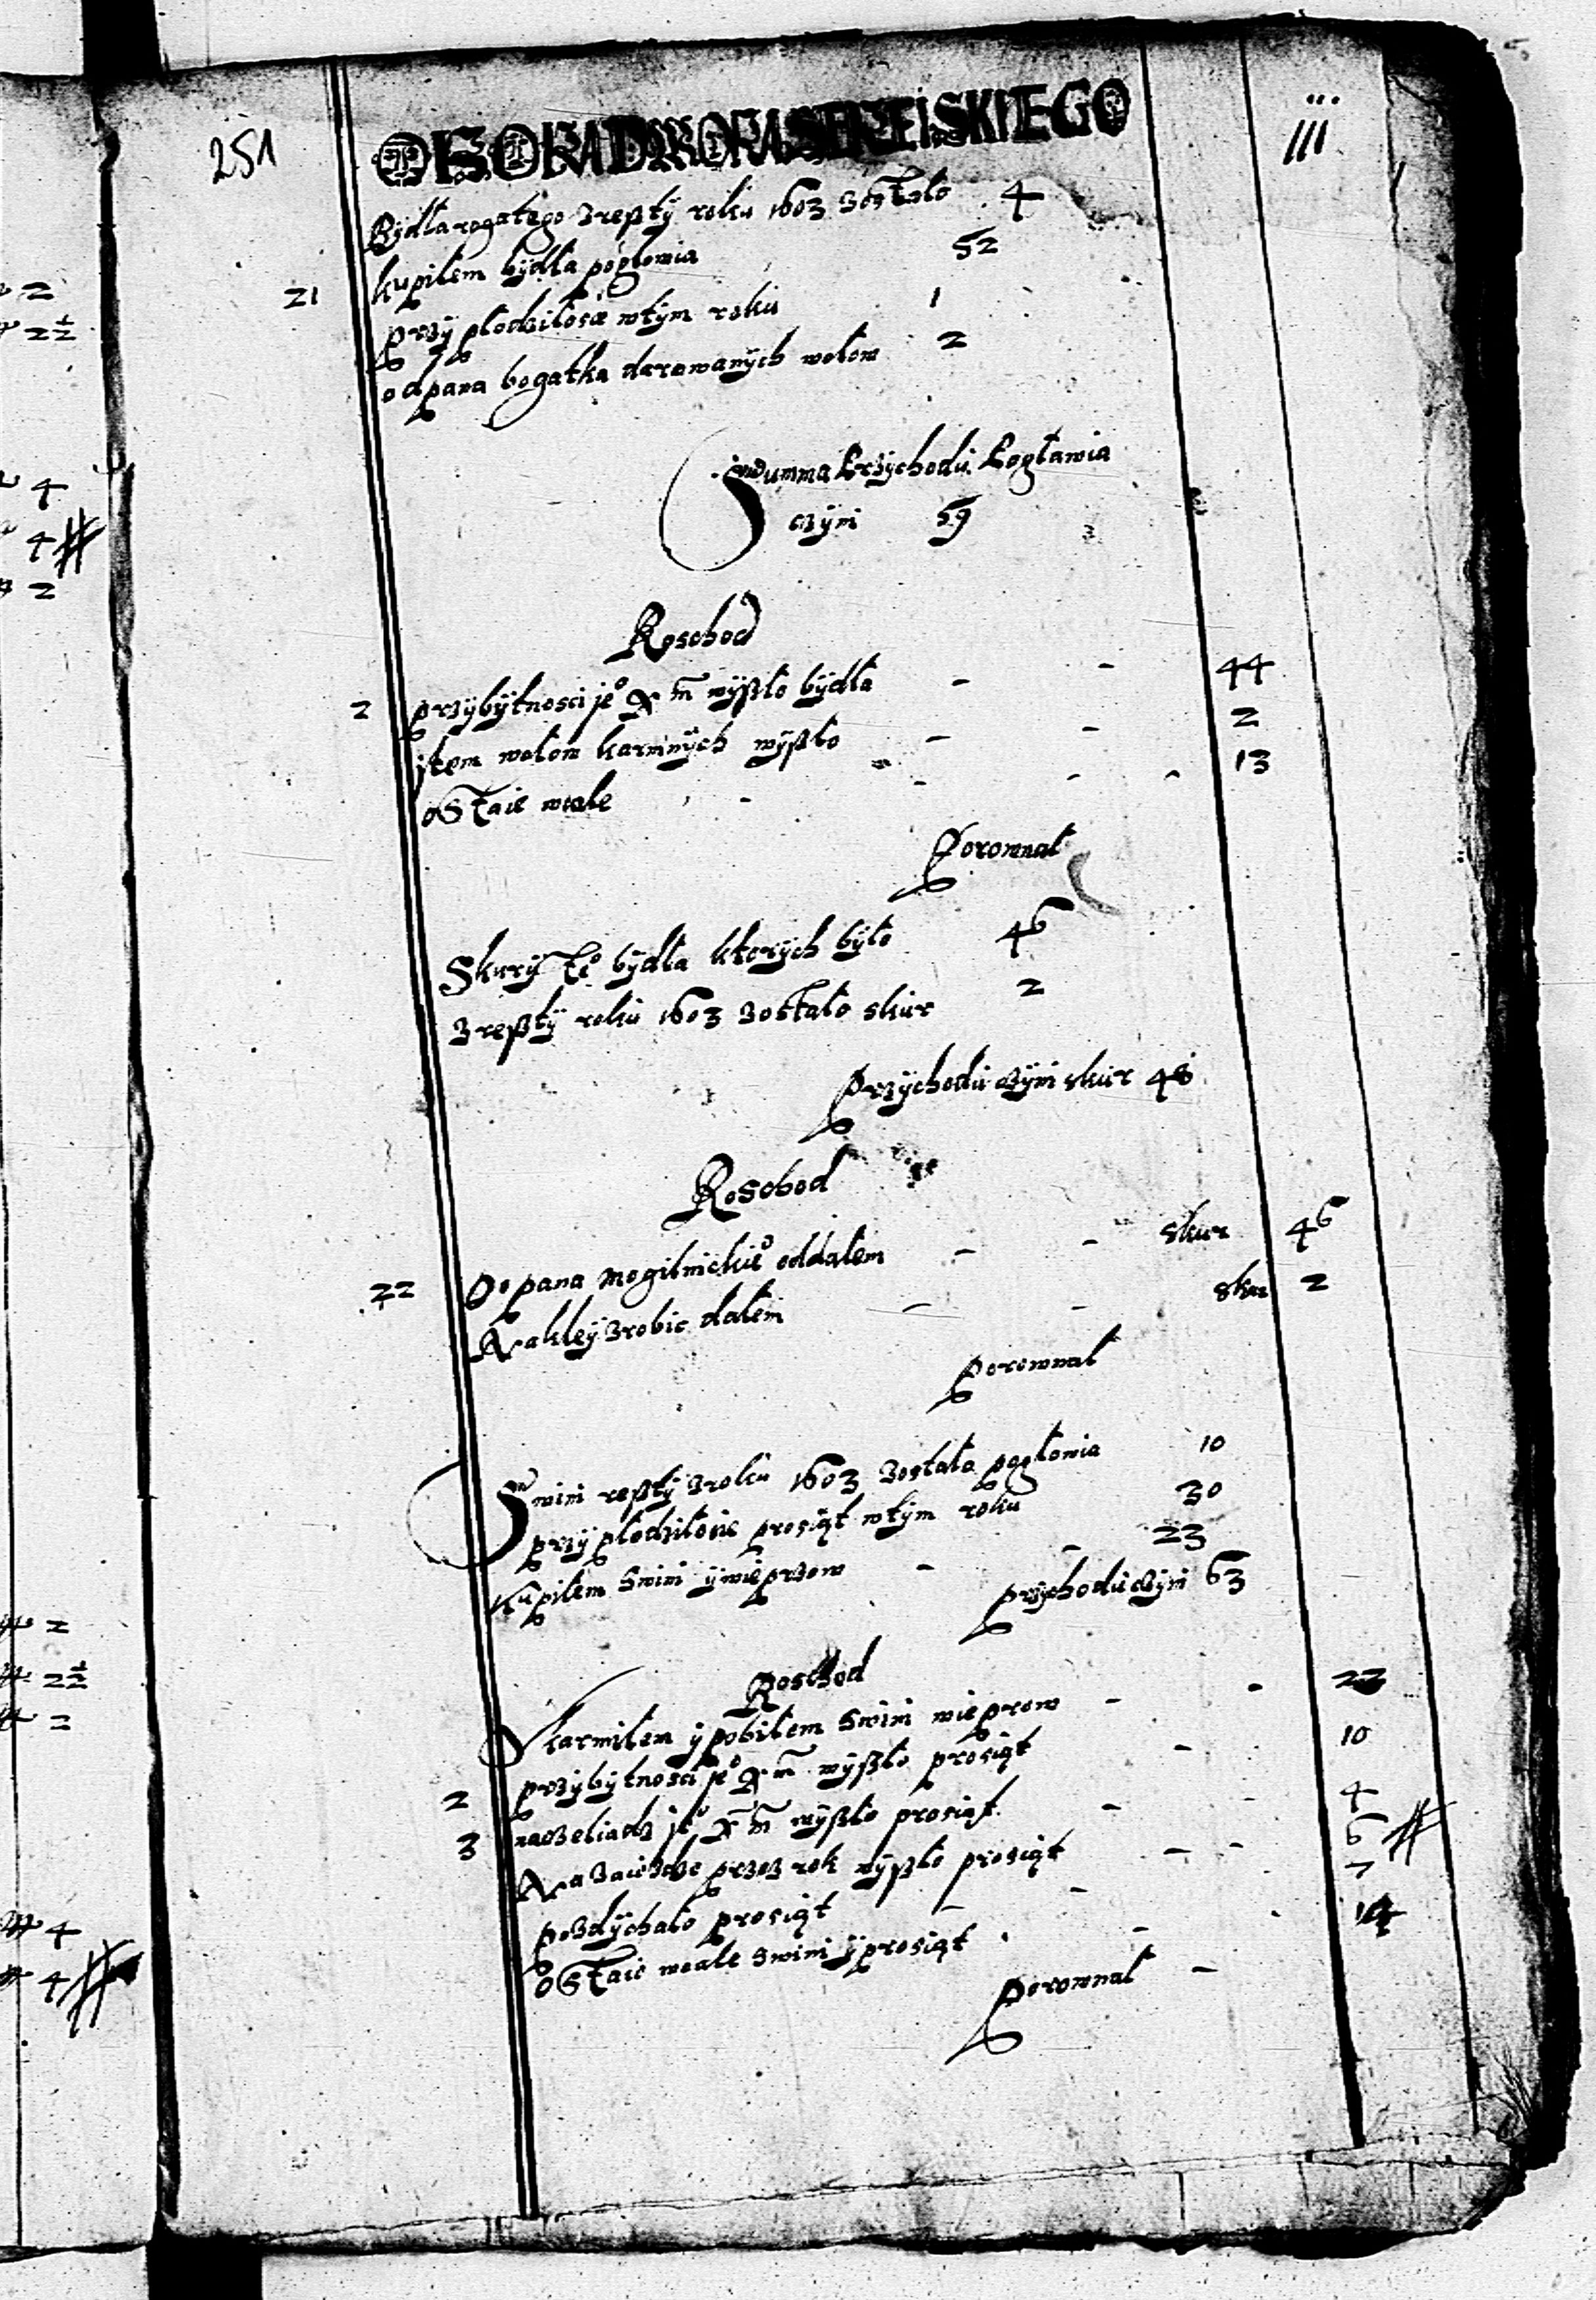 251
OBORA DWORA SEREISKIEGO
III
Bydła rogatego z reszty roku 1603 zostało 4
21 kupiłem bydła pogłowia 52
przypłodziło sie w tym roku 1
od pana bogatka darowanych wołow 2
Summa Przychodu Pogławia
czyni 59
Roschod
2 przybytnosci je° X m wyszło bydła - - 44
jtem wołow karmnych wyszło - - 2
ostaie wcale - - - 13
Porownał
Skury te° bydła ktorych było 46
z reszty roku 1603 zostało skur 2
Przychodu czyni skur 48
Roschod
22 Do pana mogilnickie° oddałem - - skur 46
Na kley zrobic dałem - - skur 2
porownał
Swini reszty z roku 1603 zostało pogłowia 10
przypłodziło sie prosiąt w tym roku 30
Kupiłem swini y wieprzow - - 23
przychodu czyni 63
Roschod
Vkarmiłem y pobiłem swini wieprow - - 22
2 przybytnosci je° X m wyszło prosiąt - 10
3 na czeliadz je° X m wyszło prosiąt - - 4
Na zaiezdze przez rok wyszło prosiąt - - 6
pozdychało prosiąt - - 7
ostaie wcale swini y prosiąt - 14
porownał -
2
2½
4
4
2
2
2½
2
4
4